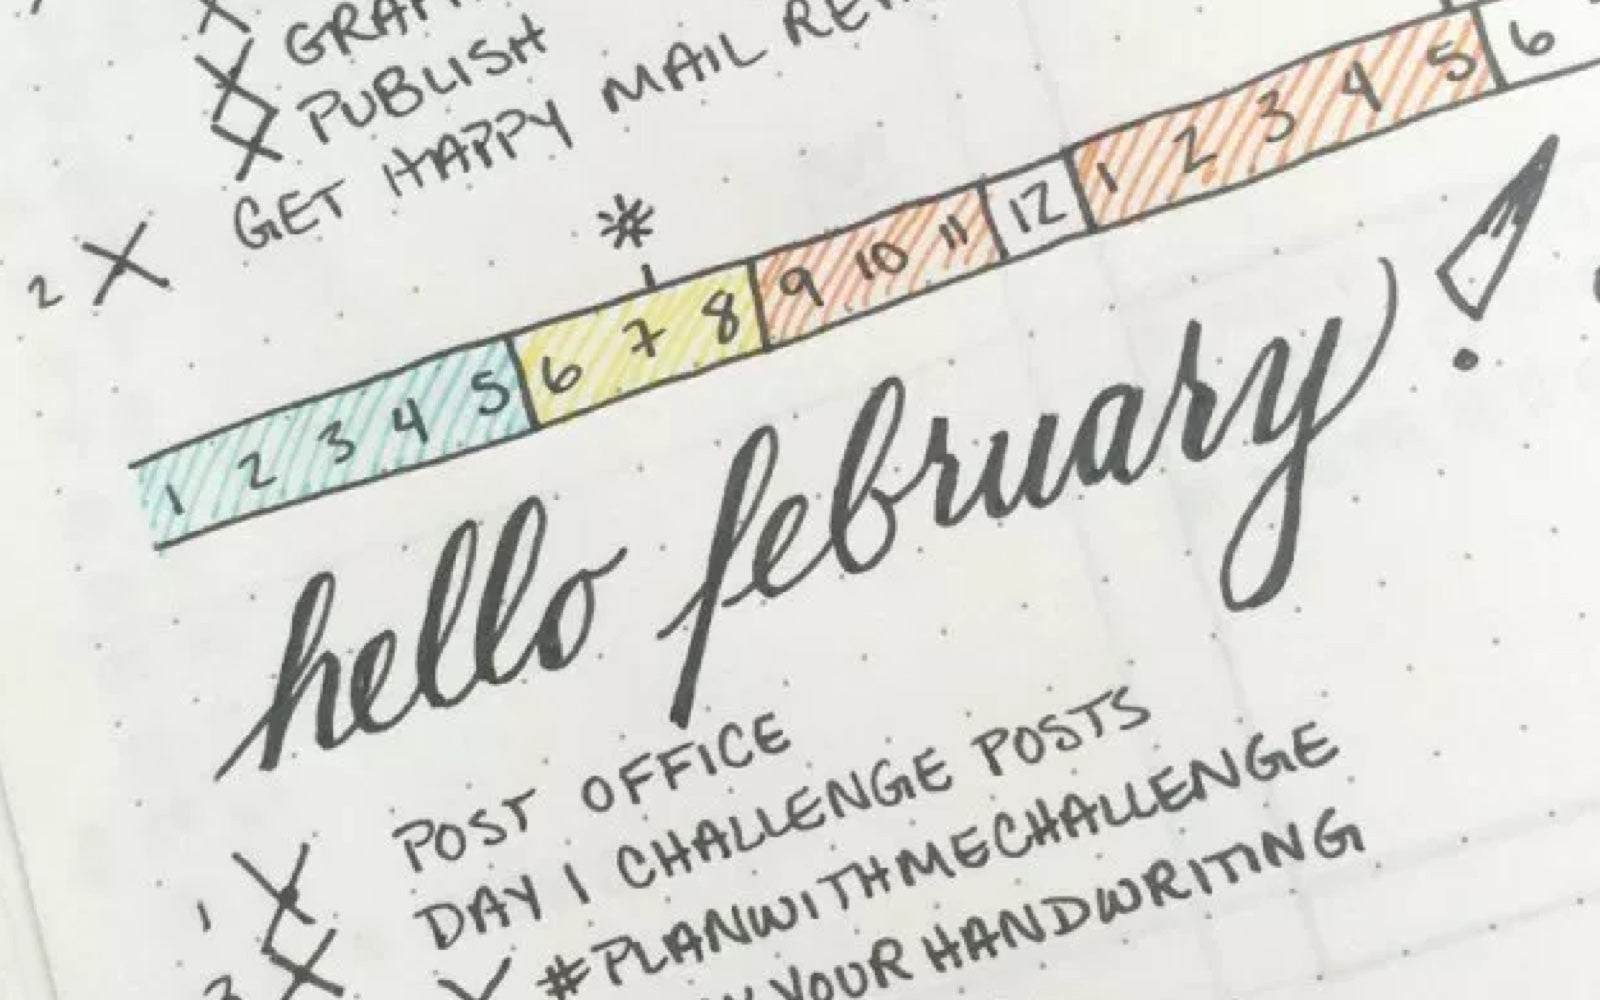 PUBLISH
2 X GET HAPPY MAIL
1 2 3 4 5 6 7 8 9 10 11 12 1 2 3 4 5 6
hello february!
1 X POST OFFICE
DAY 1 CHALLENGE POSTS
#PLANWITHMECHALLENGE
YOUR HANDWRITING